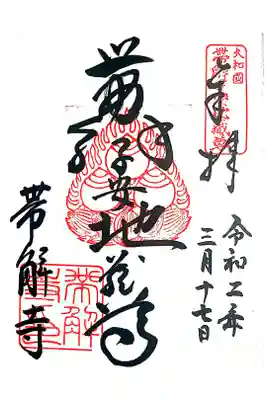 奉拝
令和二年
三月十七日
帯解
子安地蔵尊
帯解寺
大和國